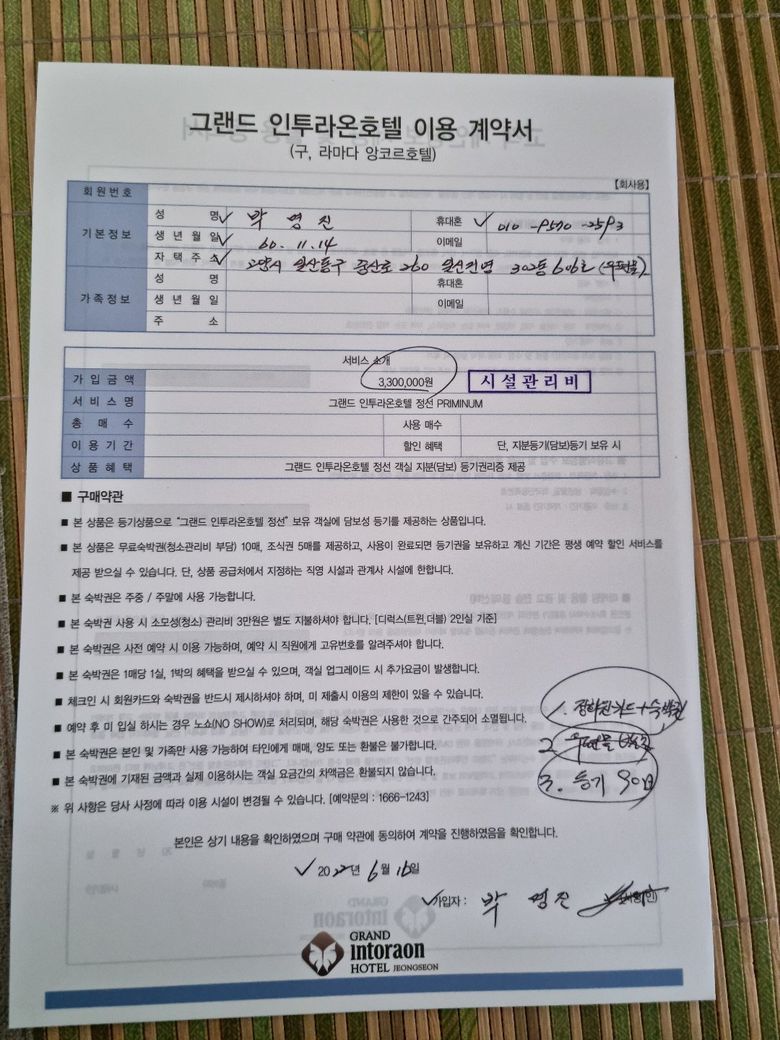 그랜드 인투라온호텔 이용 계약서
(구, 라마다 앙코르호텔)
[회사용]
회원번호
기본정보
성 명 박 영 진 휴대혼 010-9570-2593
생년월일 60. 11. 14 이메일
자택주소 고양시 일산동구 중산로 260 302동 606호 (우편물)
가족정보
성 명 휴대혼
생년월일 이메일
주 소
서비스 소개
가입금액 3,300,000원 시설관리비
서비스명 그랜드 인투라온호텔 정선 PRIMINUM
총 매 수 사용 매수
이용기간 할인 혜택 단, 지분등기(담보)등기 보유 시
상품혜택 그랜드 인투라온호텔 정선 객실 지분(담보) 등기권리증 제공
■ 구매약관
■ 본 상품은 등기상품으로 “그랜드 인투라온호텔 정선” 보유 객실에 담보성 등기를 제공하는 상품입니다.
■ 본 상품은 무료숙박권(청소관리비 부담) 10매, 조식권 5매를 제공하고, 사용이 완료되면 등기권을 보유하고 계신 기간은 평생 예약 할인 서비스를
제공 받으실 수 있습니다. 단, 상품 공급처에서 지정하는 직영 시설과 관계사 시설에 한합니다.
■ 본 숙박권은 주중 / 주말에 사용 가능합니다.
■ 본 숙박권 사용 시 소모성(청소) 관리비 3만원은 별도 지불하셔야 합니다. [디럭스(트윈,더블) 2인실 기준]
■ 본 숙박권은 사전 예약 시 이용 가능하며, 예약 시 직원에게 고유번호를 알려주셔야 합니다.
■ 본 숙박권은 1매당 1실, 1박의 혜택을 받으실 수 있으며, 객실 업그레이드 시 추가요금이 발생합니다.
■ 체크인 시 회원카드와 숙박권을 반드시 제시하셔야 하며, 미 제출시 이용의 제한이 있을 수 있습니다.
■ 예약 후 미 입실 하시는 경우 노쇼(NO SHOW)로 처리되며, 해당 숙박권은 사용한 것으로 간주되어 소멸됩니다.
■ 본 숙박권은 본인 및 가족만 사용 가능하여 타인에게 매매, 양도 또는 환불은 불가합니다.
■ 본 숙박권에 기재된 금액과 실제 이용하시는 객실 요금간의 차액금은 환불되지 않습니다.
※ 위 사항은 당사 사정에 따라 이용 시설이 변경될 수 있습니다. [예약문의 : 1666-1243]
1. 카드+숙박권
2. 우편물
3. 등기 90일
본인은 상기 내용을 확인하였으며 구매 약관에 동의하여 계약을 진행하였음을 확인합니다.
2022년 6월 16일
가입자 : 박 영 진
GRAND
intoraon
HOTEL JEONGSEON